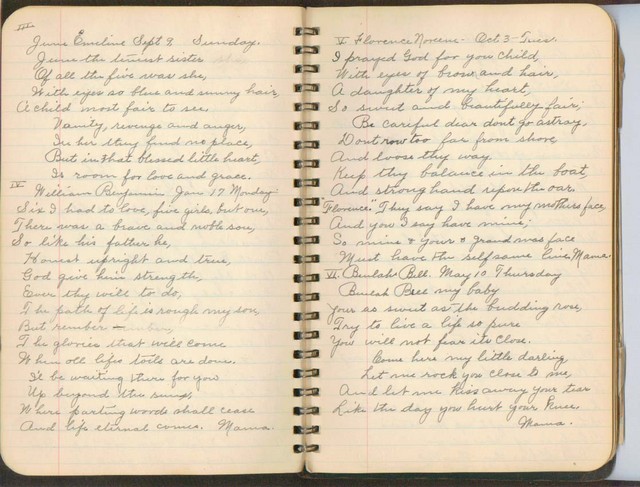 III
June Emeline Sept 9 Sunday.
June the tiniest sister
Of all the five was she,
With eyes so blue and sunny hair,
A child most fair to see.
Vanity, revenge and anger,
In her they find no place,
But in that blessed little heart,
Is room for love and grace.
IV William Benjamin Jan. 17 Monday
Six I had to love, five girls, but one,
There was a brave and noble son,
So like his father he,
Honest upright and true,
God give him strength,
Ever thy will to do,
The path of life is rough my son,
But rember –
The glories that will come
When all lifes toils are done.
I'll be waiting there for you
Up beyond the
Where parting words shall cease
And life eternal comes. Mama.
V Florence Noreene - Oct 3 - Tues.
I prayed God for you child,
With eyes of brown and hair,
A daughter of my heart,
So sweet and beautifully fair;
Be careful dear dont go astray,
Dont row too far from shore
And loose thy way.
Keep thy balance in the boat,
And strong hand upon the oar.
Florence." They say I have my mothers face,
And you I say have mine;
So mine & yours & Grandmas face
Must have the self same line. Mama.
VI. Beulah Bell. May 10. Thursday
Beulah Bell my baby
Your as sweet as the budding rose,
Try to live a life so pure
You will not fear its close.
Come here my little darling
Let me rock you close to me,
And let me kiss away your tear
Like the day you hurt your knee.
Mama.